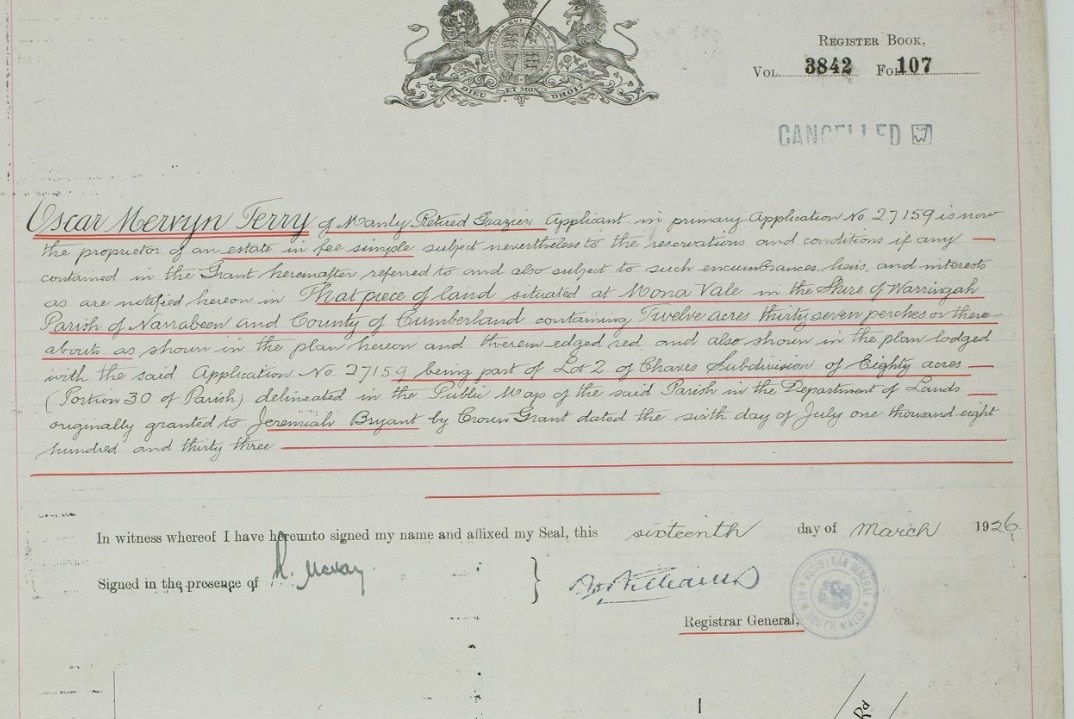 DIEU ET MON DROIT
REGISTER BOOK,
VOL. 3842 FOL. 107
CANCELLED
Oscar Mervyn Terry of Manly Retired Grazier Applicant in primary Application No 27159 is now
the proprietor of an estate in fee simple subject nevertheless to the reservations and conditions if any
contained in the Grant hereinafter referred to and also subject to such encumbrances, liens, and interests
as are notified hereon in That piece of land situated at Mona Vale in the Shire of Warringah
Parish of Narrabeen and County of Cumberland containing Twelve acres thirty seven perches or there-
abouts as shown in the plan hereon and therein edged red and also shown in the plan lodged
with the said Application No. 27159 being part of Lot 2 of Chaves Subdivision of Eighty acres
(Portion 30 of Parish) delineated in the Public Map of the said Parish in the Department of Lands
originally granted to Jeremiah Bryant by Crown Grant dated the sixth day of July one thousand eight
hundred and thirty three
In witness whereof I have hereunto signed my name and affixed my Seal, this sixteenth day of March 1926.
Signed in the presence of
Williams
Registrar General.
REGISTRAR GENERAL
Rd